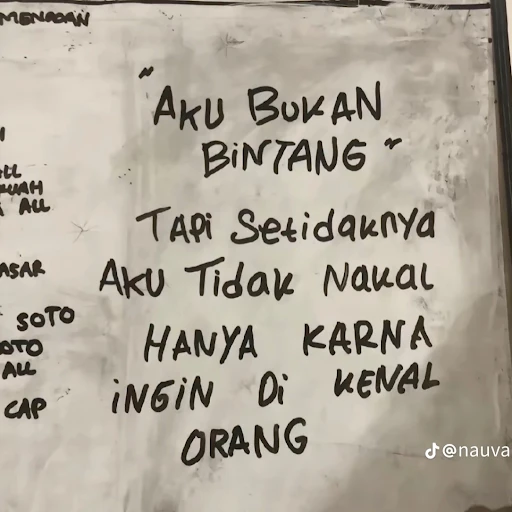 MENADAN
"AKU BUKAN
BiNTANG"
TAPi Setidaknya
AKU Tidak Nakal
HANYA KARNA
iNGiN Di KENAL
ORANG
ALL
ASAR
SOTO
OTO
ALL
CAP
@nauva